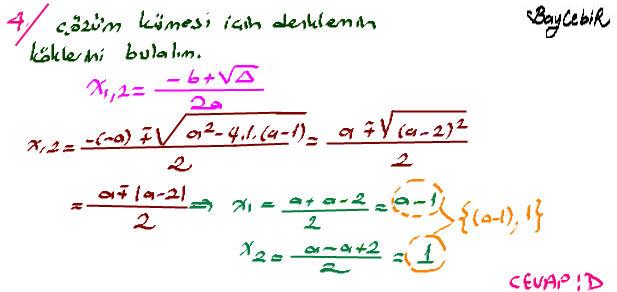 4/ çözüm kümesi için denklemin
BayCebiR
köklerini bulalım.
x₁,₂ = (-b+√Δ)/2a
x₁,₂ = (-(-a) ∓ √(a²-4.1.(a-1)))/2 = (a ∓ √((a-2)²))/2
= (a ∓ |a-2|)/2 ⇒ x₁ = (a+a-2)/2 = a-1
x₂ = (a-a+2)/2 = 1
{(a-1), 1}
CEVAP:D